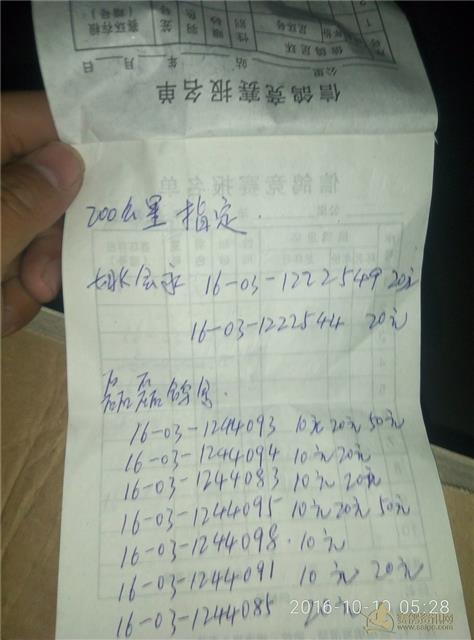 信鸽竞赛报名单
公里 站 年 月 日
信鸽足环
性别
羽色
信鸽竞赛报名单
200公里指定.
16-03-1222549 20元
16-03-1222544 20元
磊磊鸽舍.
16-03-1244093 10元 20元 50元
16-03-1244094 10元 20元
16-03-1244083 10元 20元
16-03-1244095 10元 20元 50元
16-03-1244098. 10元
16-03-1244091 10元 20元
16-03-1244085 20元
2016-10-10 05:28